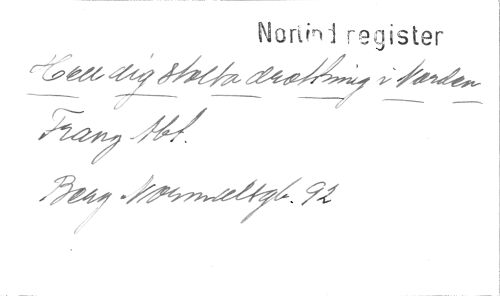 Nortind register
Hell dig stolta drottning i Norden
Franz Abt.
Berg Normaltgb. 92